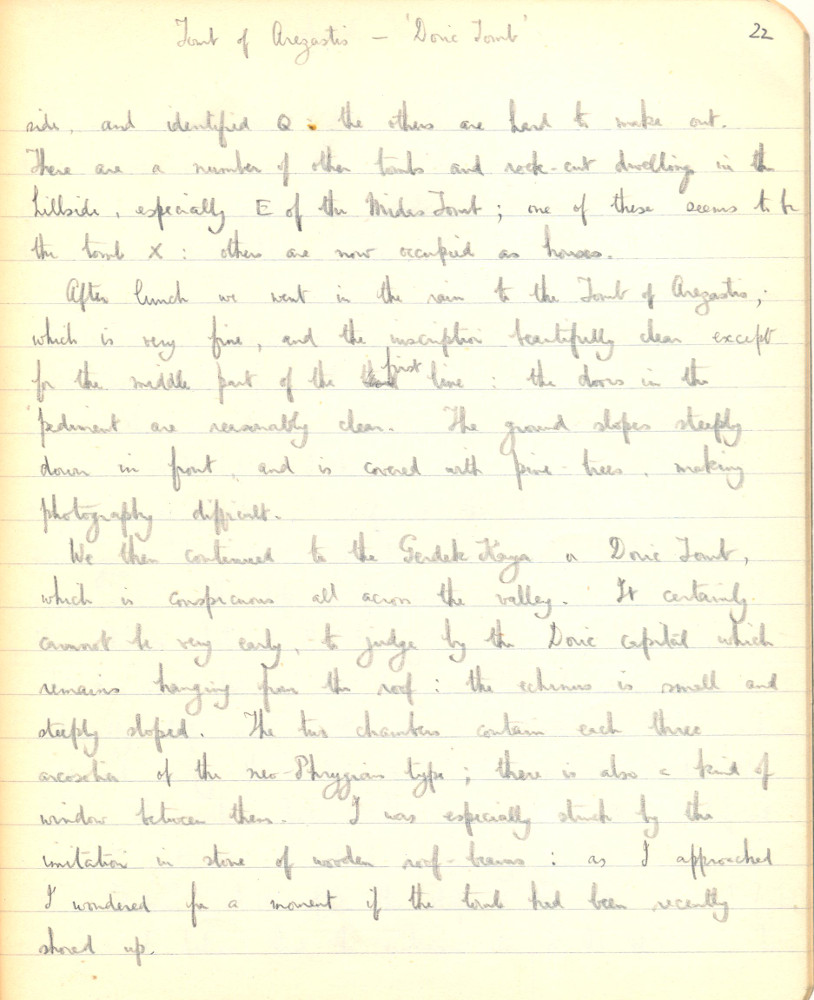 Tomb of Arezastis – 'Doric Tomb'
22
side, and identified Q : the others are hard to make out.
There are a number of other tombs and rock-cut dwellings in the
hillside, especially E of the Midas Tomb ; one of these seems to be
the tomb X : others are now occupied as houses.
After lunch we went in the rain to the Tomb of Arezastis,
which is very fine, and the inscription beautifully clear except
for the middle part of the first line : the doors in the
pediment are reasonably clear. The ground slopes steeply
down in front, and is covered with pine-trees, making
photography difficult.
We then continued to the Gerdek Kaya or Doric Tomb,
which is conspicuous all across the valley. It certainly
cannot be very early, to judge by the Doric capital which
remains hanging from the roof : the echinus is small and
steeply sloped. The two chambers contain each three
arcosolia of the neo-Phrygian type ; there is also a kind of
window between them. I was especially struck by the
imitation in stone of wooden roof-beams : as I approached
I wondered for a moment if the tomb had been recently
shored up.